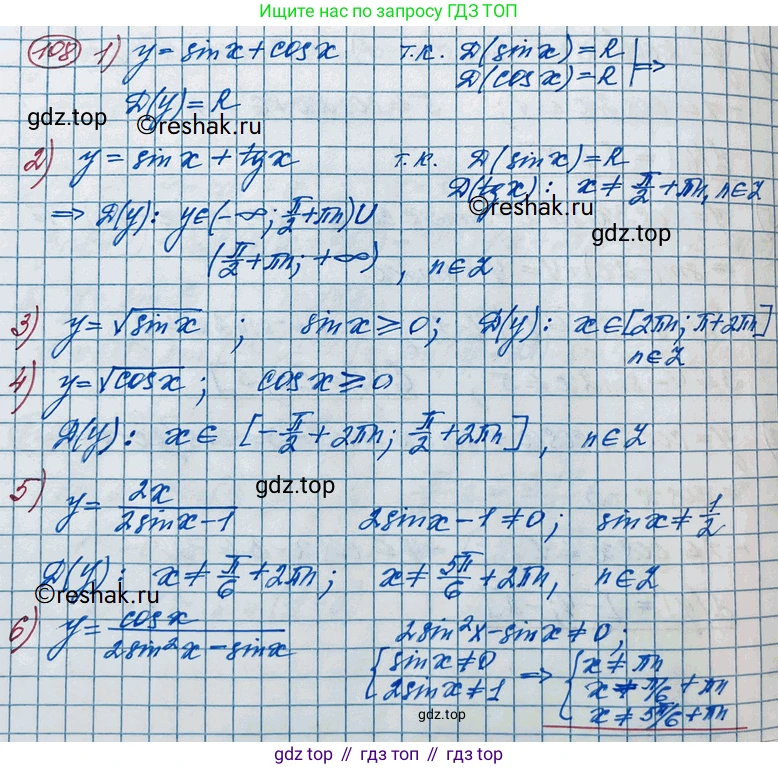 Ищите нас по запросу ГДЗ ТОП
108 1) y = sinx + cosx т.к. D(sinx) = R
D(cosx) = R | =>
D(y) = R
gdz.top
©reshak.ru
2) y = sinx + tgx т.к. D(sinx) = R
D(tgx): x ≠ π/2 + πn, n∈Z
©reshak.ru
=> D(y): y∈(-∞; π/2 + πn) U
gdz.top
(π/2 + πn; +∞), n∈Z
3) y = √sinx ; sinx ≥ 0; D(y): x∈[2πn; π+2πn]
n∈Z
4) y = √cosx ; cosx ≥ 0
D(y): x∈ [-π/2 + 2πn; π/2 + 2πn], n∈Z
5) y = 2x/(2sinx-1) 2sinx - 1 ≠ 0; sinx ≠ 1/2
gdz.top
D(y): x ≠ π/6 + 2πn; x ≠ 5π/6 + 2πn, n∈Z
©reshak.ru
6) y = cosx/(2sin²x - sinx) 2sin²x - sinx ≠ 0;
{ sinx ≠ 0 => { x ≠ πn
2sinx ≠ 1 x ≠ π/6 + πn
x ≠ 5π/6 + πn
gdz.top
gdz.top // гдз топ // gdz.top